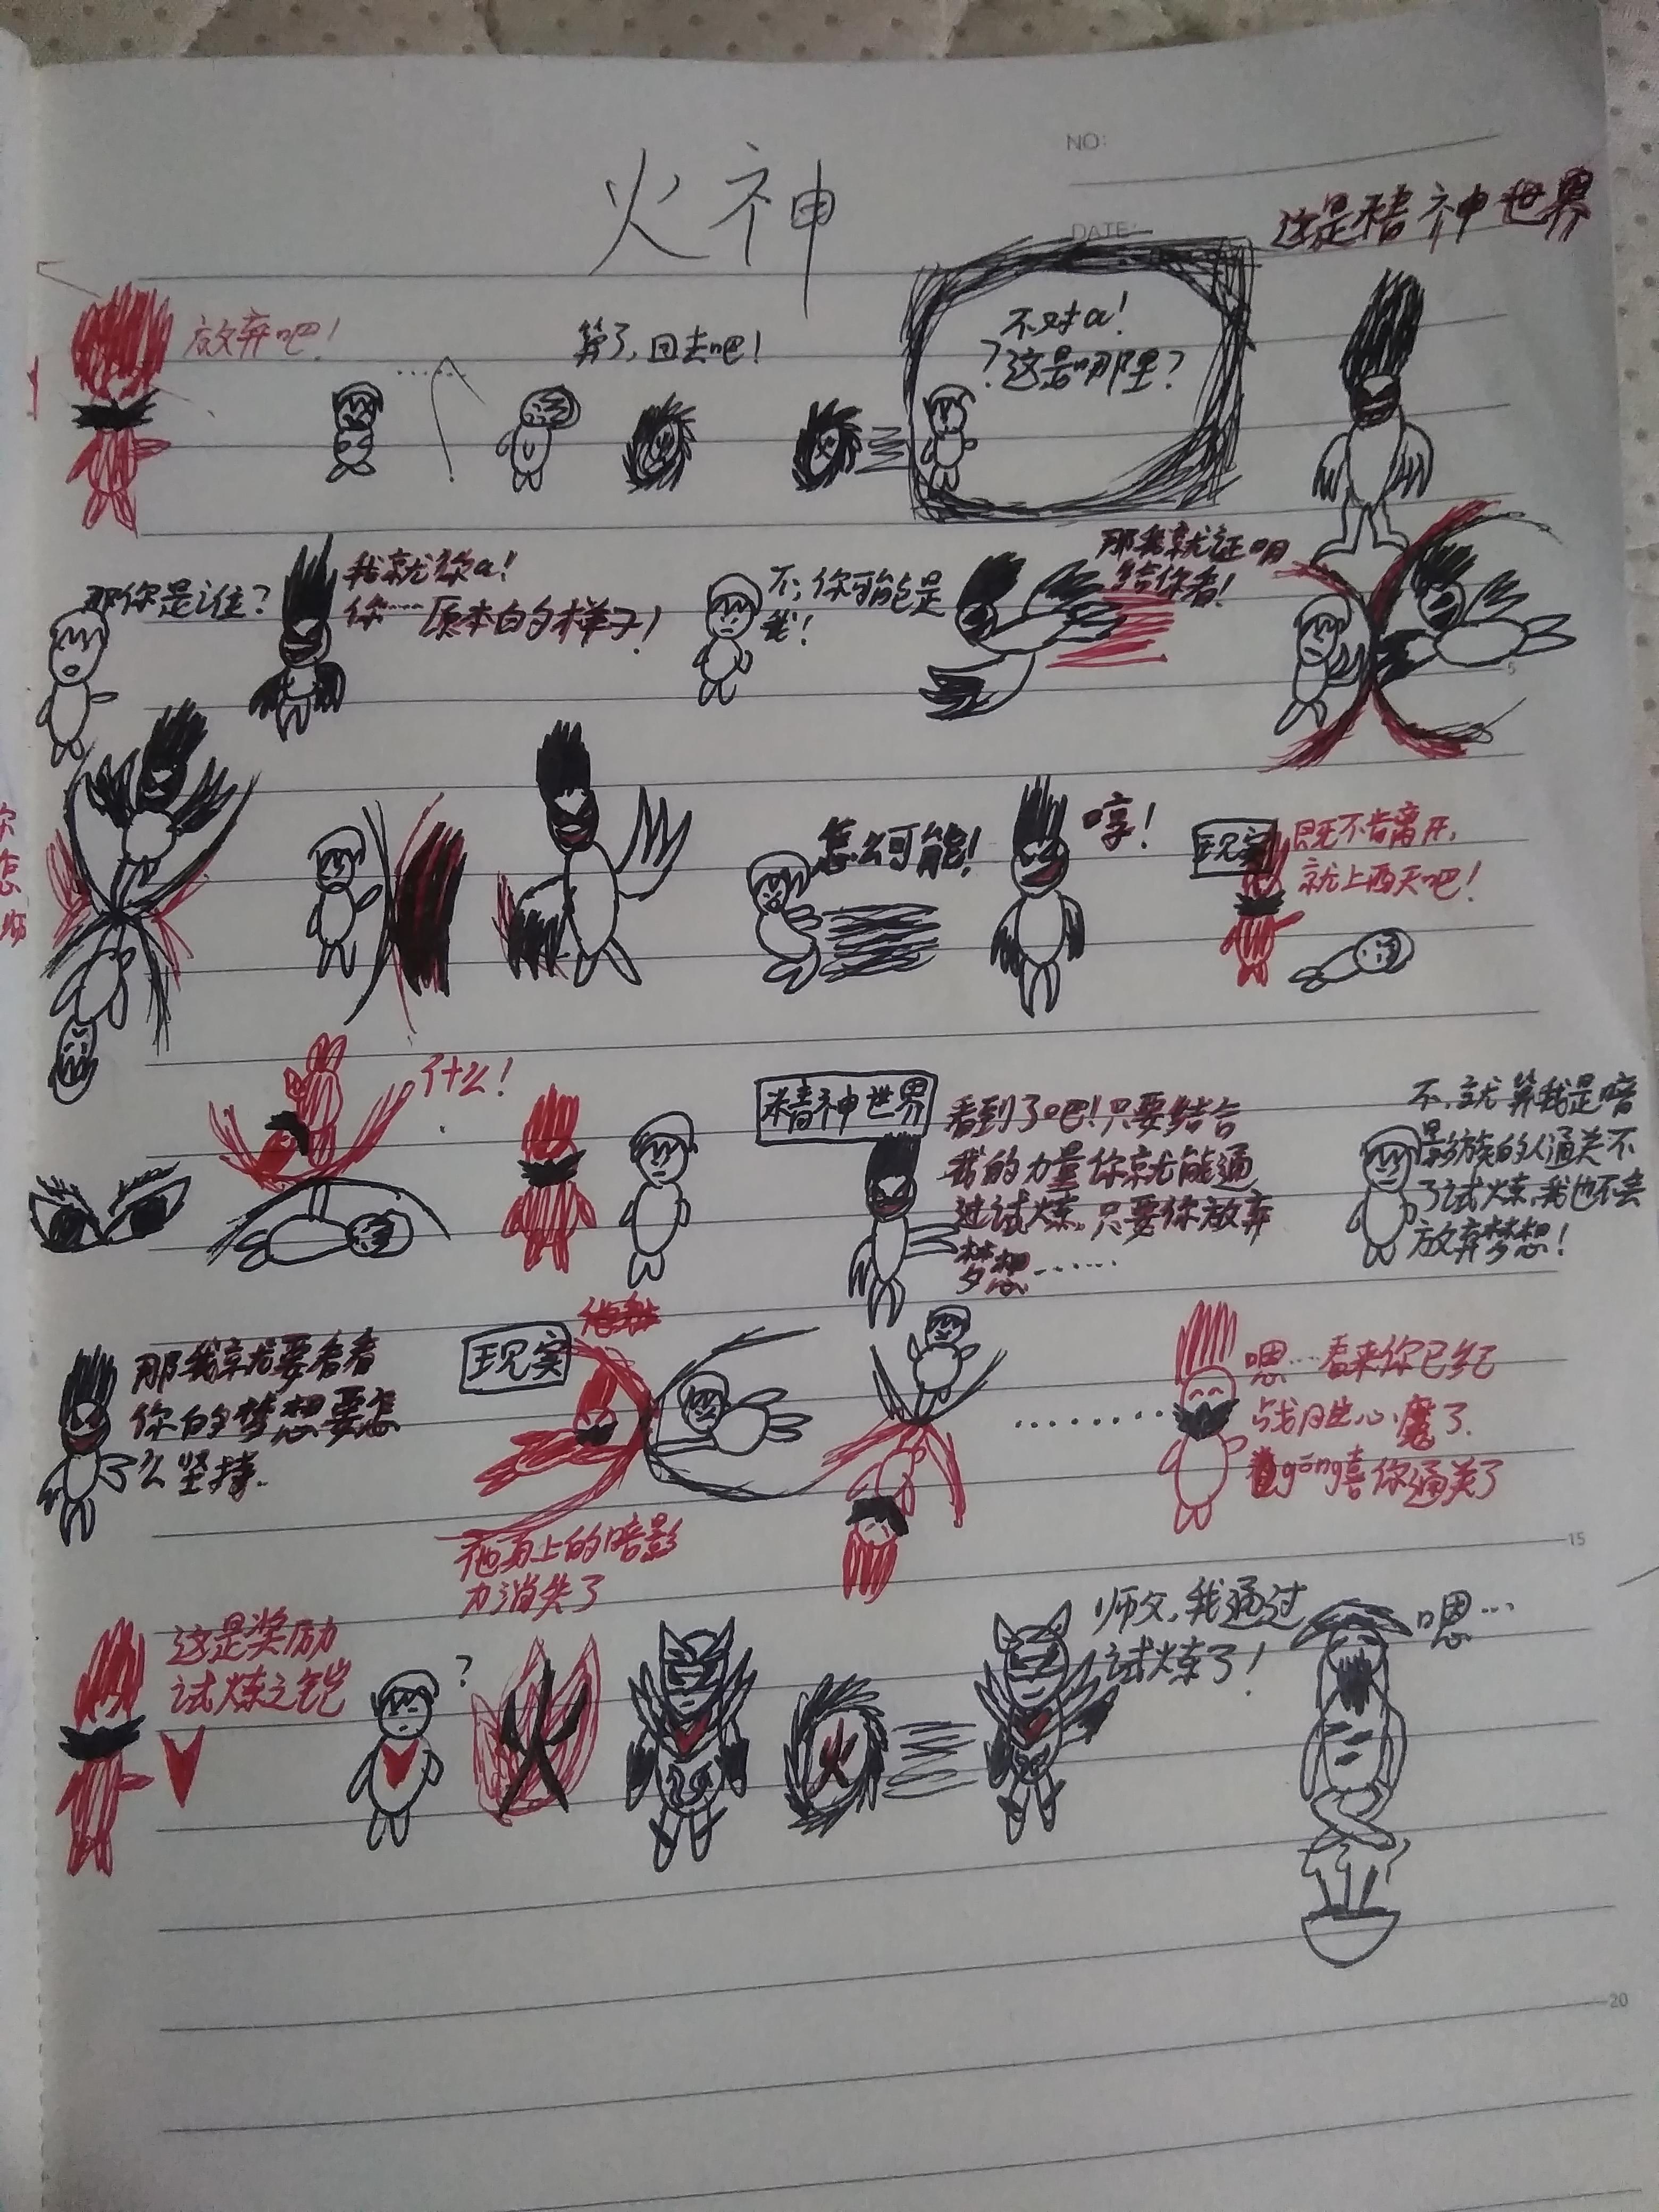 火神
NO:
DATE:
这是精神世界
放弃吧!
......
算了,回去吧!
不对a!
?这是哪里?
那你是谁?
我就你a!
你……原本白的样子!
不,你可能是
我!
那我就证明
给你看!
5
怎么可能!
哼!
现实
既不肯离开,
就上西天吧!
什么!
精神世界
看到了吧!只要结合
我的力量你就能通
过试炼,只要你放弃
梦想……
不,就算我是暗
影族的人通关不
了试炼,我也不会
放弃梦想!
那我就要看看
你的梦想要怎
么坚持.
现实
他身上的暗影
力消失了
.........
嗯……看来你已经
战胜心魔了.
gōng喜你通关了
15
这是奖励
试炼之铠
?
火
火
师父,我通过
试炼了!
嗯…
20
你
怎